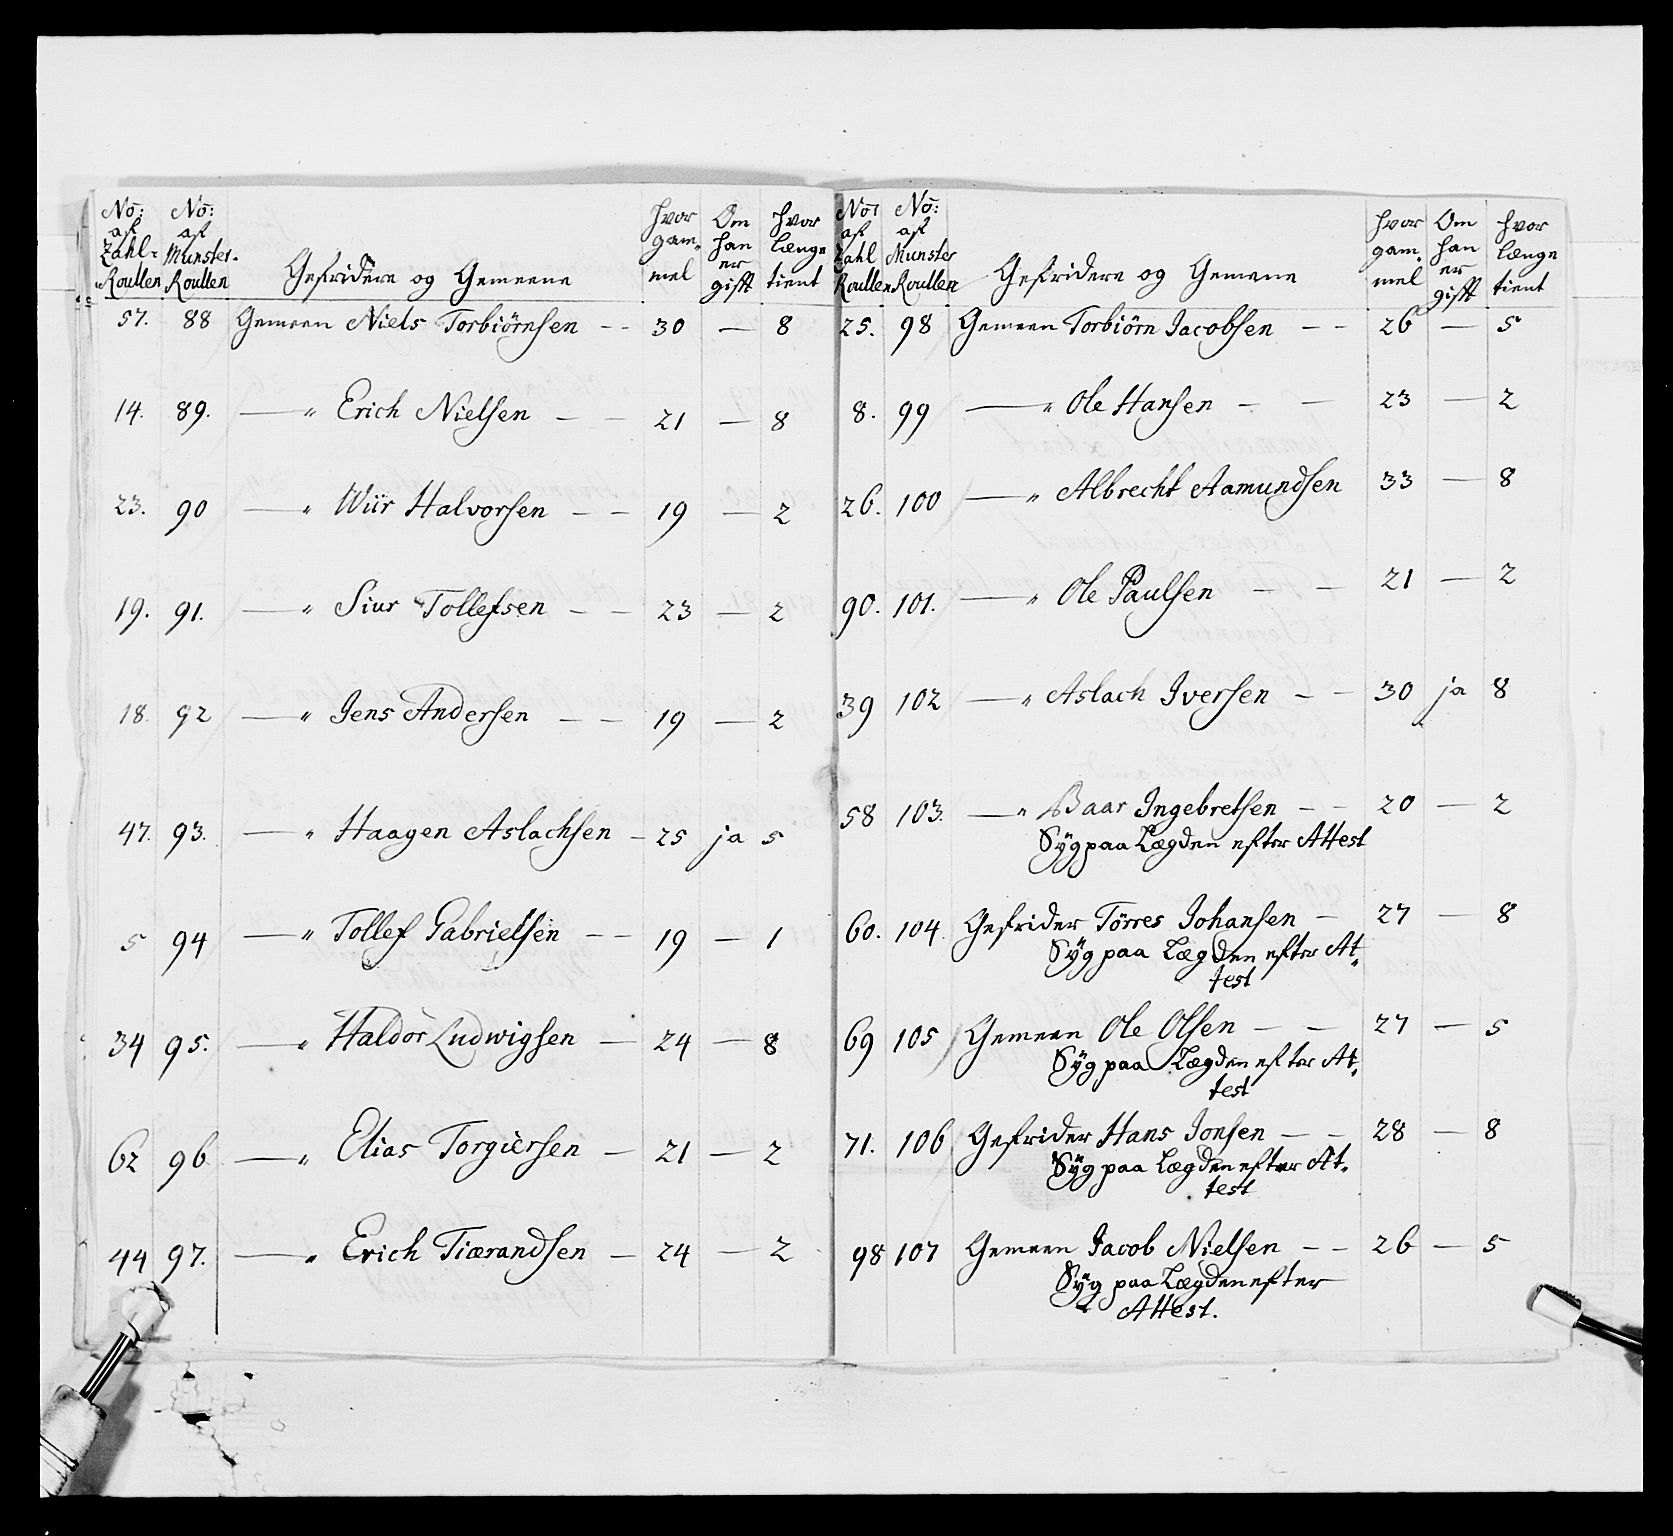 No: No: hvor Om hvor
af af gam- han længe
Zahl- Munster- er
Roullen Roullen Gefridere og Gemeene mel gift tient
57. 88 Gemeen Niels Torbiörnsen - - 30 — 8
14. 89. — " Erich Nielsen - - 21 — 8
23. 90 — " Wiir Halvorsen - - 19 — 2
19. 91. — " Siur Tollefsen - - 23 — 2
18. 92 — " Jens Andersen - - 19 — 2
47. 93. — " Haagen Aslachsen - 25 ja 5
5 94 — " Tollef Gabrielsen - - 19 — 1
34 95. — " Haldor Ludwigsen - 24 — 8
62 96 — " Elias Torgiersen - 21 — 2
44 97. — " Erich Tiærandsen - 24 — 2
No: No: hvor Om hvor
af af gam- han længe
Zahl Munster er
Roullen Roullen Gefridere og Gemene mel gift tient
25. 98 Gemeen Torbiörn Jacobsen - - 26 — 5
8. 99 — " Ole Hansen - - 23 — 2
26. 100 — " Albrecht Aamundsen 33 — 8
90. 101. — " Ole Paulsen - - 21 — 2
39 102 — " Aslach Iversen - - 30 ja 8
58 103. — " Baar Ingebretsen - - 20 — 2
Syg paa Lægden efter Attest
60. 104. Gefrider Törres Johansen - 27 — 8
Syg paa Lægden efter At-
test
69 105 Gemeen Ole Olsen - - 27 — 5
Syg paa Lægden efter At-
test
71. 106 Gefrider Hans Jonsen - - 28 — 8
Syg paa Lægden efter At-
test
98 107 Gemeen Jacob Nielsen - - 26 — 5
Syg paa Lægden efter
Attest.